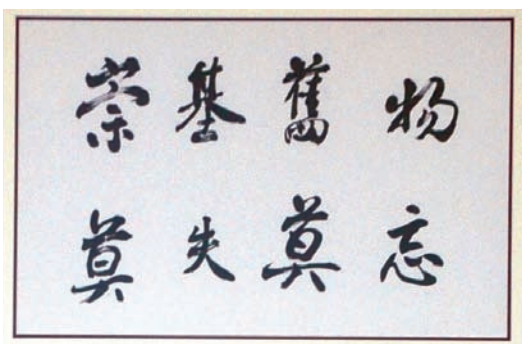 崇基舊物
莫失莫忘